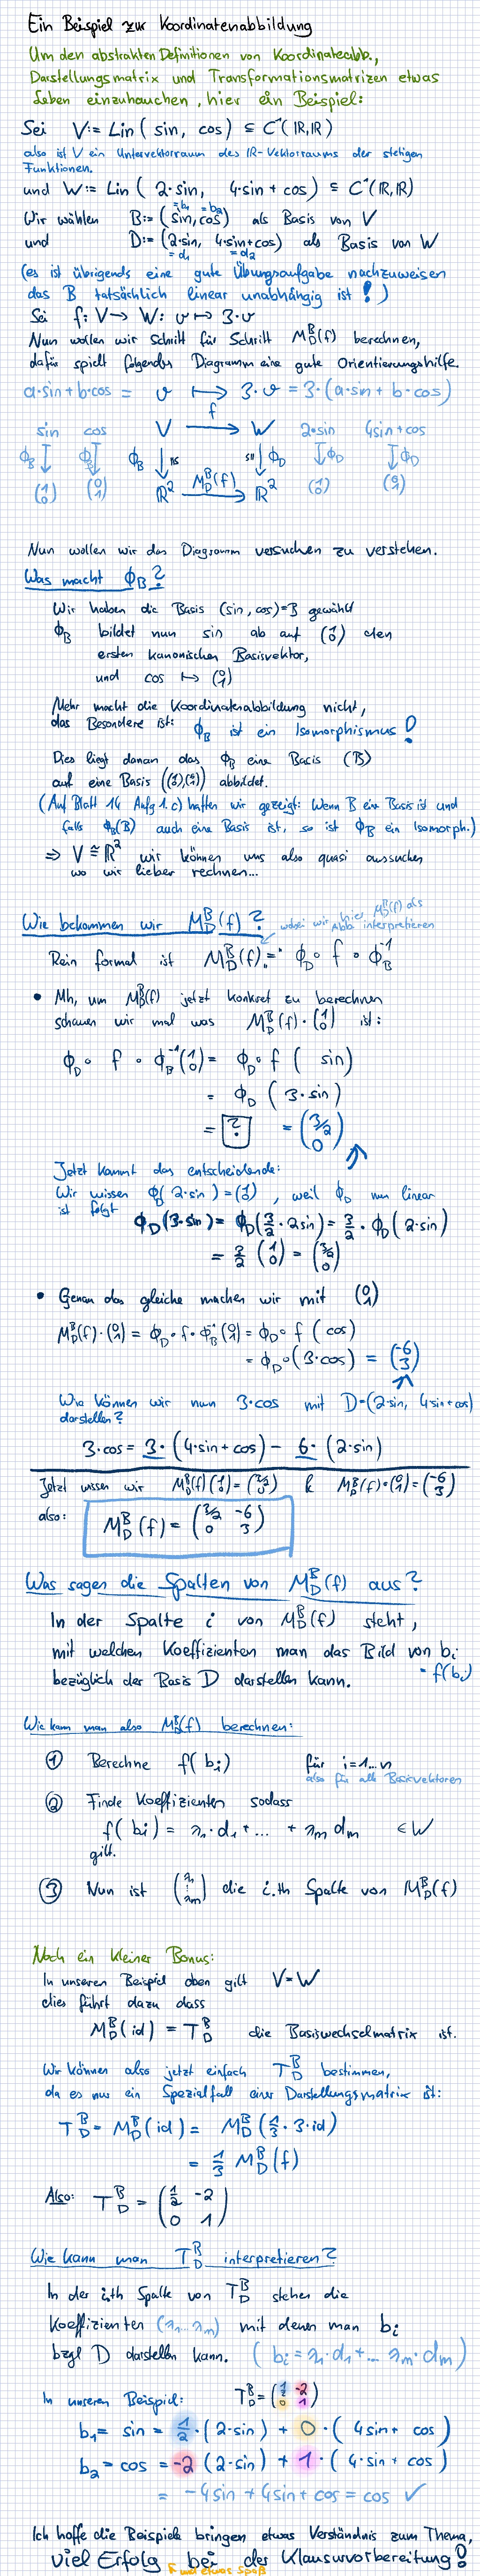 Ein Beispiel zur Koordinatenabbildung
Um den abstrakten Definitionen von Koordinatenabb.,
Darstellungsmatrix und Transformationsmatrizen etwas
Leben einzuhauchen, hier ein Beispiel:
Sei V:= Lin( sin, cos) ⊆ C¹(ℝ,ℝ)
also ist V ein Untervektorraum des ℝ-Vektorraums der stetigen
Funktionen.
und W:= Lin( 2·sin, 4·sin + cos) ⊆ C¹(ℝ,ℝ)
Wir wählen B:= (sin, cos) als Basis von V
=b₁ =b₂
und D:= (2·sin, 4·sin+cos) als Basis von W
=d₁ =d₂
(es ist übrigends eine gute Übungsaufgabe nachzuweisen
das B tatsächlich linear unabhängig ist!)
Sei f: V → W: v ↦ 3·v
Nun wollen wir Schritt für Schritt M_D^B(f) berechnen,
dafür spielt folgendes Diagramm eine gute Orientierungshilfe.
a·sin + b·cos = v ↦ 3·v = 3·(a·sin + b·cos)
f
sin cos V → W 2·sin 4sin+cos
ϕ_B ↓ ϕ_B ↓ ϕ_B ↓ ≅ ≅ ↓ ϕ_D ↓ ϕ_D ↓ ϕ_D
(1 0) (0 1) ℝ² M_D^B(f) → ℝ² (1 0) (0 1)
Nun wollen wir das Diagramm versuchen zu verstehen.
Was macht ϕ_B?
Wir haben die Basis (sin, cos)=B gewählt
ϕ_B bildet nun sin ab auf (1 0) den
ersten kanonischen Basisvektor,
und cos ↦ (0 1)
Mehr macht die Koordinatenabbildung nicht,
das Besondere ist: ϕ_B ist ein Isomorphismus!
Dies liegt daran das ϕ_B eine Basis (B)
auf eine Basis ((1 0),(0 1)) abbildet.
(Auf Blatt 14 Aufg 1.c) hatten wir gezeigt: Wenn B ein Basis ist und
falls ϕ_B(B) auch eine Basis ist, so ist ϕ_B ein Isomorph.)
⇒ V ≅ ℝ² wir können uns also quasi aussuchen
wo wir lieber rechnen...
Wie bekommen wir M_D^B(f)?
wobei wir hier M_D^B(f) als
Abb interpretieren
Rein formal ist M_D^B(f) := ϕ_D ∘ f ∘ ϕ_B^-1
• Mh, um M_D^B(f) jetzt konkret zu berechnen
schauen wir mal was M_D^B(f)·(1 0) ist:
ϕ_D ∘ f ∘ ϕ_B^-1 (1 0) = ϕ_D ∘ f ( sin)
= ϕ_D ( 3·sin)
= ? = (3/2 0)
Jetzt kommt das entscheidende:
Wir wissen ϕ_D( 2·sin ) = (1 0), weil ϕ_D nun linear
ist folgt
ϕ_D(3·sin) = ϕ_D(3/2 · 2sin) = 3/2 · ϕ_D( 2·sin)
= 3/2 (1 0) = (3/2 0)
• Genau das gleiche machen wir mit (0 1)
M_D^B(f)·(0 1) = ϕ_D ∘ f ∘ ϕ_B^-1 (0 1) = ϕ_D ∘ f ( cos)
= ϕ_D ∘ (3·cos) = (-6 3)
Wie können wir nun 3·cos mit D=(2·sin, 4sin+cos)
darstellen?
3·cos = 3·(4·sin + cos) − 6·(2·sin)
Jetzt wissen wir M_D^B(f)(1 0) = (3/2 0) & M_D^B(f)·(0 1) = (-6 3)
also: M_D^B(f) = (3/2 -6
0 3)
Was sagen die Spalten von M_D^B(f) aus?
In der Spalte i von M_D^B(f) steht,
mit welchen Koeffizienten man das Bild von b_i
= f(b_i)
bezüglich der Basis D darstellen kann.
Wie kann man also M_D^B(f) berechnen:
① Berechne f(b_i) für i=1...n
also für alle Basisvektoren
② Finde Koeffizienten sodass
f(b_i) = λ₁·d₁ + ... + λ_m d_m ∈ W
gilt.
③ Nun ist (λ₁ ⋮ λ_m) die i.th Spalte von M_D^B(f)
Noch ein kleiner Bonus:
In unseren Beispiel oben gilt V=W
dies führt dazu dass
M_D^B(id) = T_D^B die Basiswechselmatrix ist.
Wir können also jetzt einfach T_D^B bestimmen,
da es nur ein Spezialfall einer Darstellungsmatrix ist:
T_D^B = M_D^B(id) = M_D^B(1/3 · 3·id)
= 1/3 M_D^B(f)
Also: T_D^B = (1/2 -2
0 1)
Wie kann man T_D^B interpretieren?
In der i.th Spalte von T_D^B stehen die
Koeffizienten (λ₁...λ_m) mit denen man b_i
bzgl D darstellen kann. ( b_i = λ₁·d₁+... λ_m·d_m)
In unseren Beispiel: T_D^B = (1/2 -2
0 1)
b₁ = sin = 1/2·(2·sin) + 0·( 4sin + cos)
b₂ = cos = -2 (2·sin) + 1·( 4·sin + cos)
= −4sin + 4sin + cos = cos ✓
Ich hoffe die Beispiele bringen etwas Verständnis zum Thema,
viel Erfolg bei der Klausurvorbereitung!
und etwas Spaß